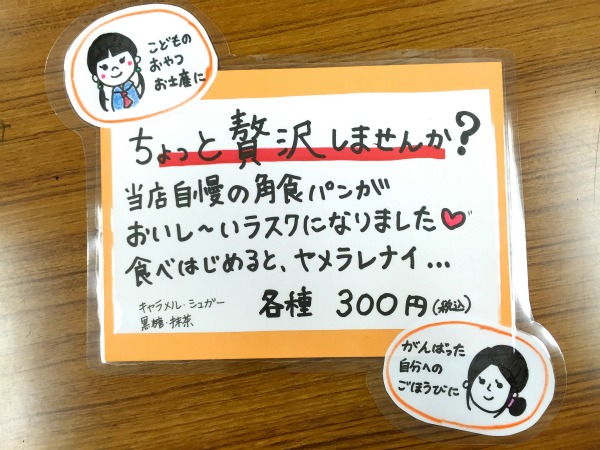 こどもの
おやつ
お土産に
ちょっと贅沢しませんか?
当店自慢の角食パンが
おいし〜いラスクになりました♥
食べはじめると、ヤメラレナイ...
キャラメル・シュガー
黒糖・抹茶
各種 300円(税込)
がんばった
自分への
ごほうびに